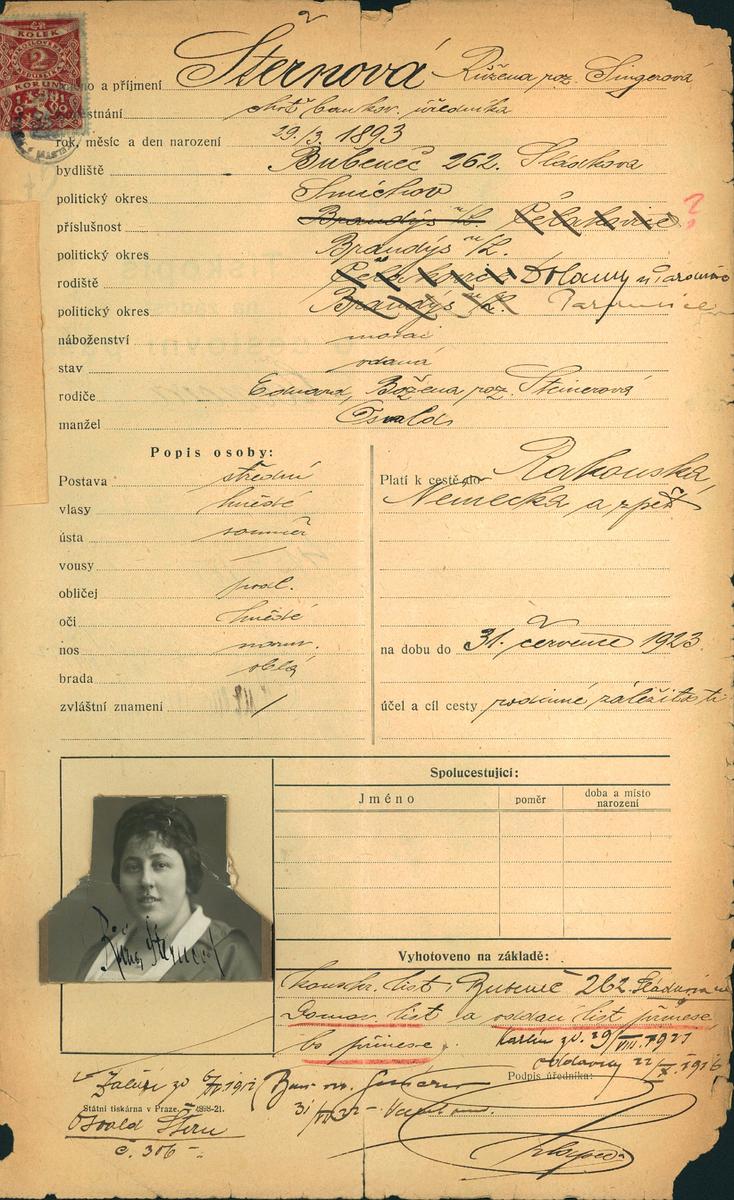 ČR
KOLEK
2
KORUNY
Jméno a příjmení Sternová Růžena roz. Singerová
zaměstnání choť bankov. úředníka
rok, měsíc a den narození 29./3. 1893
bydliště Bubeneč 262. Sládkova
politický okres Smíchov
příslušnost Brandýs n/L. Čelakovic ?
politický okres Brandýs n/L.
rodiště Čelakovic Dolany u Jaroměře
politický okres Brandýs n/L.
náboženství mosai
stav vdaná
rodiče Eduard, Božena roz. Steinerová
manžel Osvald
Popis osoby:
Postava střední
vlasy hnědé
ústa souměr
vousy /
obličej podl.
oči hnědé
nos norm.
brada oblá
zvláštní znamení /
Platí k cestě do Rakouska,
Německa a zpět
na dobu do 31. července 1923
účel a cíl cesty rodinné záležitosti
Spolucestující:
Jméno poměr doba a místo narození
Růžena Sternová
Vyhotoveno na základě:
konskr. list, Bubeneč 262. Sládkova
Domov. list a oddací list přinese
Karlín zd. 29/VIII. 1921
přinese
22/X. 1916
Podpis úředníka:
1912
Státní tiskárna v Praze. 1898-21.
Osvald Stern
č. 306 –